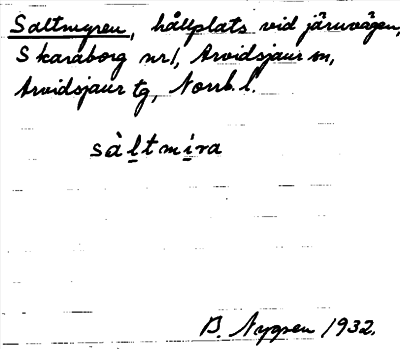 Saltmyren, hållplats vid järnvägen,
Skaraborg nr 1, Arvidsjaur sn,
Arvidsjaur tg, Norrb. l.
sàltmira
B. Nygren 1932.